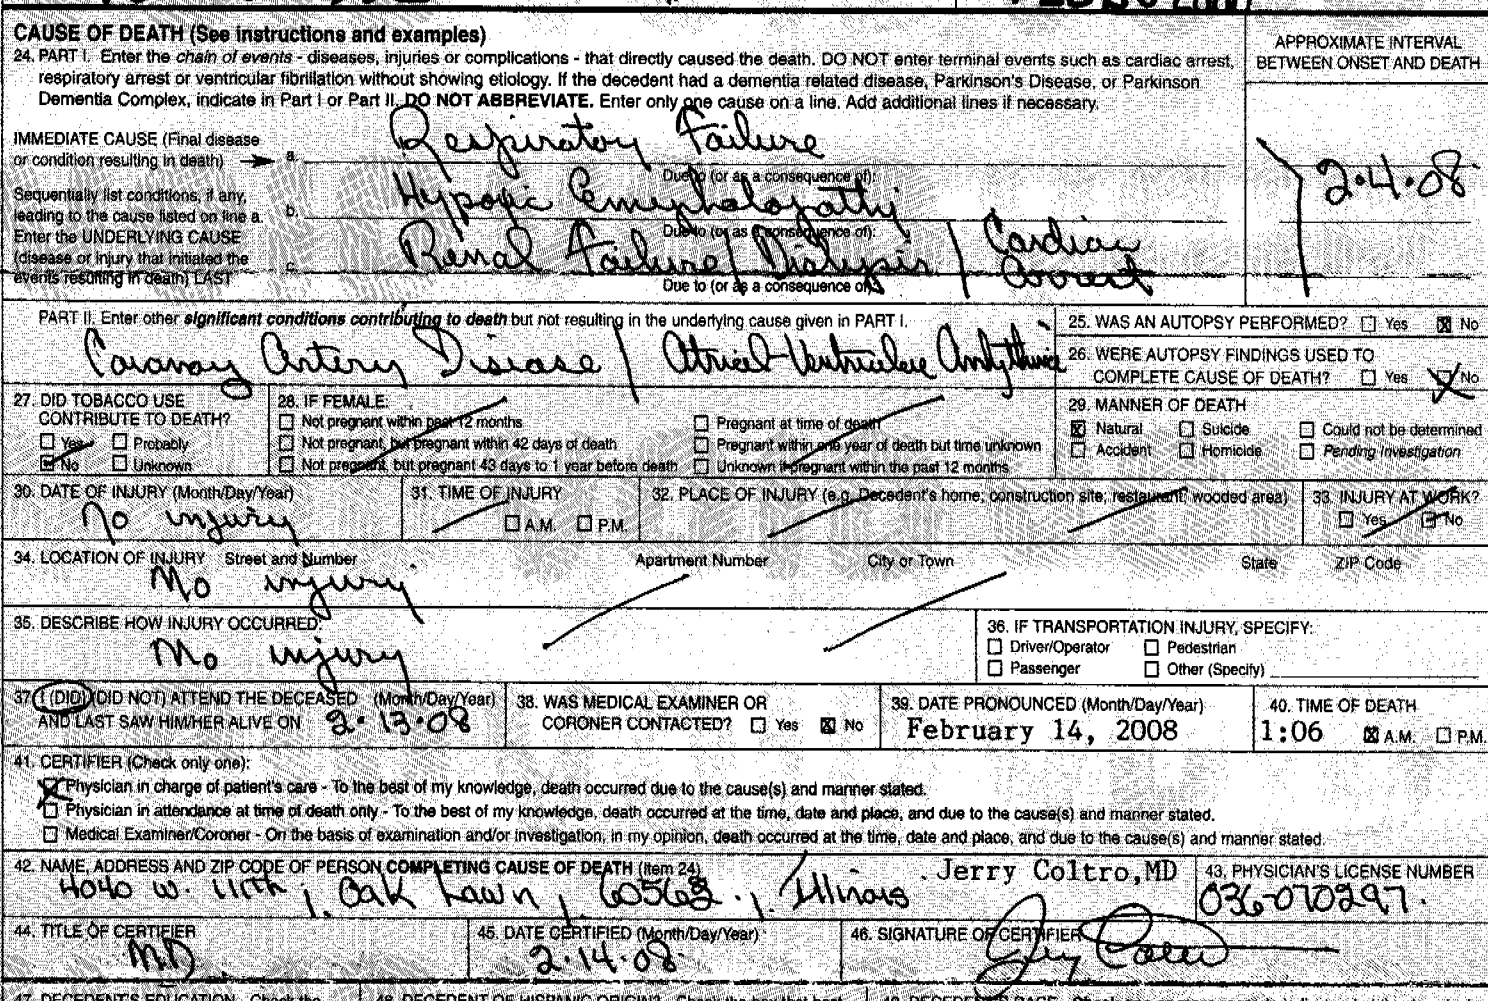 CAUSE OF DEATH (See instructions and examples)
24. PART I. Enter the chain of events - diseases, injuries or complications - that directly caused the death. DO NOT enter terminal events such as cardiac arrest,
respiratory arrest or ventricular fibrillation without showing etiology. If the decedent had a dementia related disease, Parkinson's Disease, or Parkinson
Dementia Complex, indicate in Part I or Part II. DO NOT ABBREVIATE. Enter only one cause on a line. Add additional lines if necessary.
APPROXIMATE INTERVAL
BETWEEN ONSET AND DEATH
IMMEDIATE CAUSE (Final disease
or condition resulting in death)
a. Respiratory Failure
Due to (or as a consequence of):
2.4.08
Sequentially list conditions, if any,
leading to the cause listed on line a.
Enter the UNDERLYING CAUSE
(disease or injury that initiated the
events resulting in death) LAST
b. Hypoxic
Due to (or as a consequence of):
c. Renal Failure / Dialysis / Cardiac
Arrest
Due to (or as a consequence of):
PART II. Enter other significant conditions contributing to death but not resulting in the underlying cause given in PART I.
Artery Disease / Atrial-
25. WAS AN AUTOPSY PERFORMED? Yes No
26. WERE AUTOPSY FINDINGS USED TO
COMPLETE CAUSE OF DEATH? Yes No
27. DID TOBACCO USE
CONTRIBUTE TO DEATH?
Yes Probably
No Unknown
28. IF FEMALE:
Not pregnant within past 12 months
Not pregnant, but pregnant within 42 days of death
Not pregnant, but pregnant 43 days to 1 year before death
Pregnant at time of death
Pregnant within one year of death but time unknown
Unknown if pregnant within the past 12 months
29. MANNER OF DEATH
Natural Suicide Could not be determined
Accident Homicide Pending Investigation
30. DATE OF INJURY (Month/Day/Year)
No injury
31. TIME OF INJURY
A.M. P.M.
32. PLACE OF INJURY (e.g. Decedent's home; construction site; restaurant; wooded area)
33. INJURY AT WORK?
Yes No
34. LOCATION OF INJURY Street and Number Apartment Number City or Town State ZIP Code
No injury
35. DESCRIBE HOW INJURY OCCURRED:
No injury
36. IF TRANSPORTATION INJURY, SPECIFY:
Driver/Operator Pedestrian
Passenger Other (Specify)
37. I (DID) (DID NOT) ATTEND THE DECEASED (Month/Day/Year)
AND LAST SAW HIM/HER ALIVE ON 2.13.08
38. WAS MEDICAL EXAMINER OR
CORONER CONTACTED? Yes No
39. DATE PRONOUNCED (Month/Day/Year)
February 14, 2008
40. TIME OF DEATH
1:06 A.M. P.M.
41. CERTIFIER (Check only one):
Physician in charge of patient's care - To the best of my knowledge, death occurred due to the cause(s) and manner stated.
Physician in attendance at time of death only - To the best of my knowledge, death occurred at the time, date and place, and due to the cause(s) and manner stated.
Medical Examiner/Coroner - On the basis of examination and/or investigation, in my opinion, death occurred at the time, date and place, and due to the cause(s) and manner stated.
42. NAME, ADDRESS AND ZIP CODE OF PERSON COMPLETING CAUSE OF DEATH (Item 24)
Jerry Coltro, MD
4040 W. 111th, Oak Lawn, Illinois
43. PHYSICIAN'S LICENSE NUMBER
036-070297.
44. TITLE OF CERTIFIER
M.D
45. DATE CERTIFIED (Month/Day/Year)
2.14.08
46. SIGNATURE OF CERTIFIER